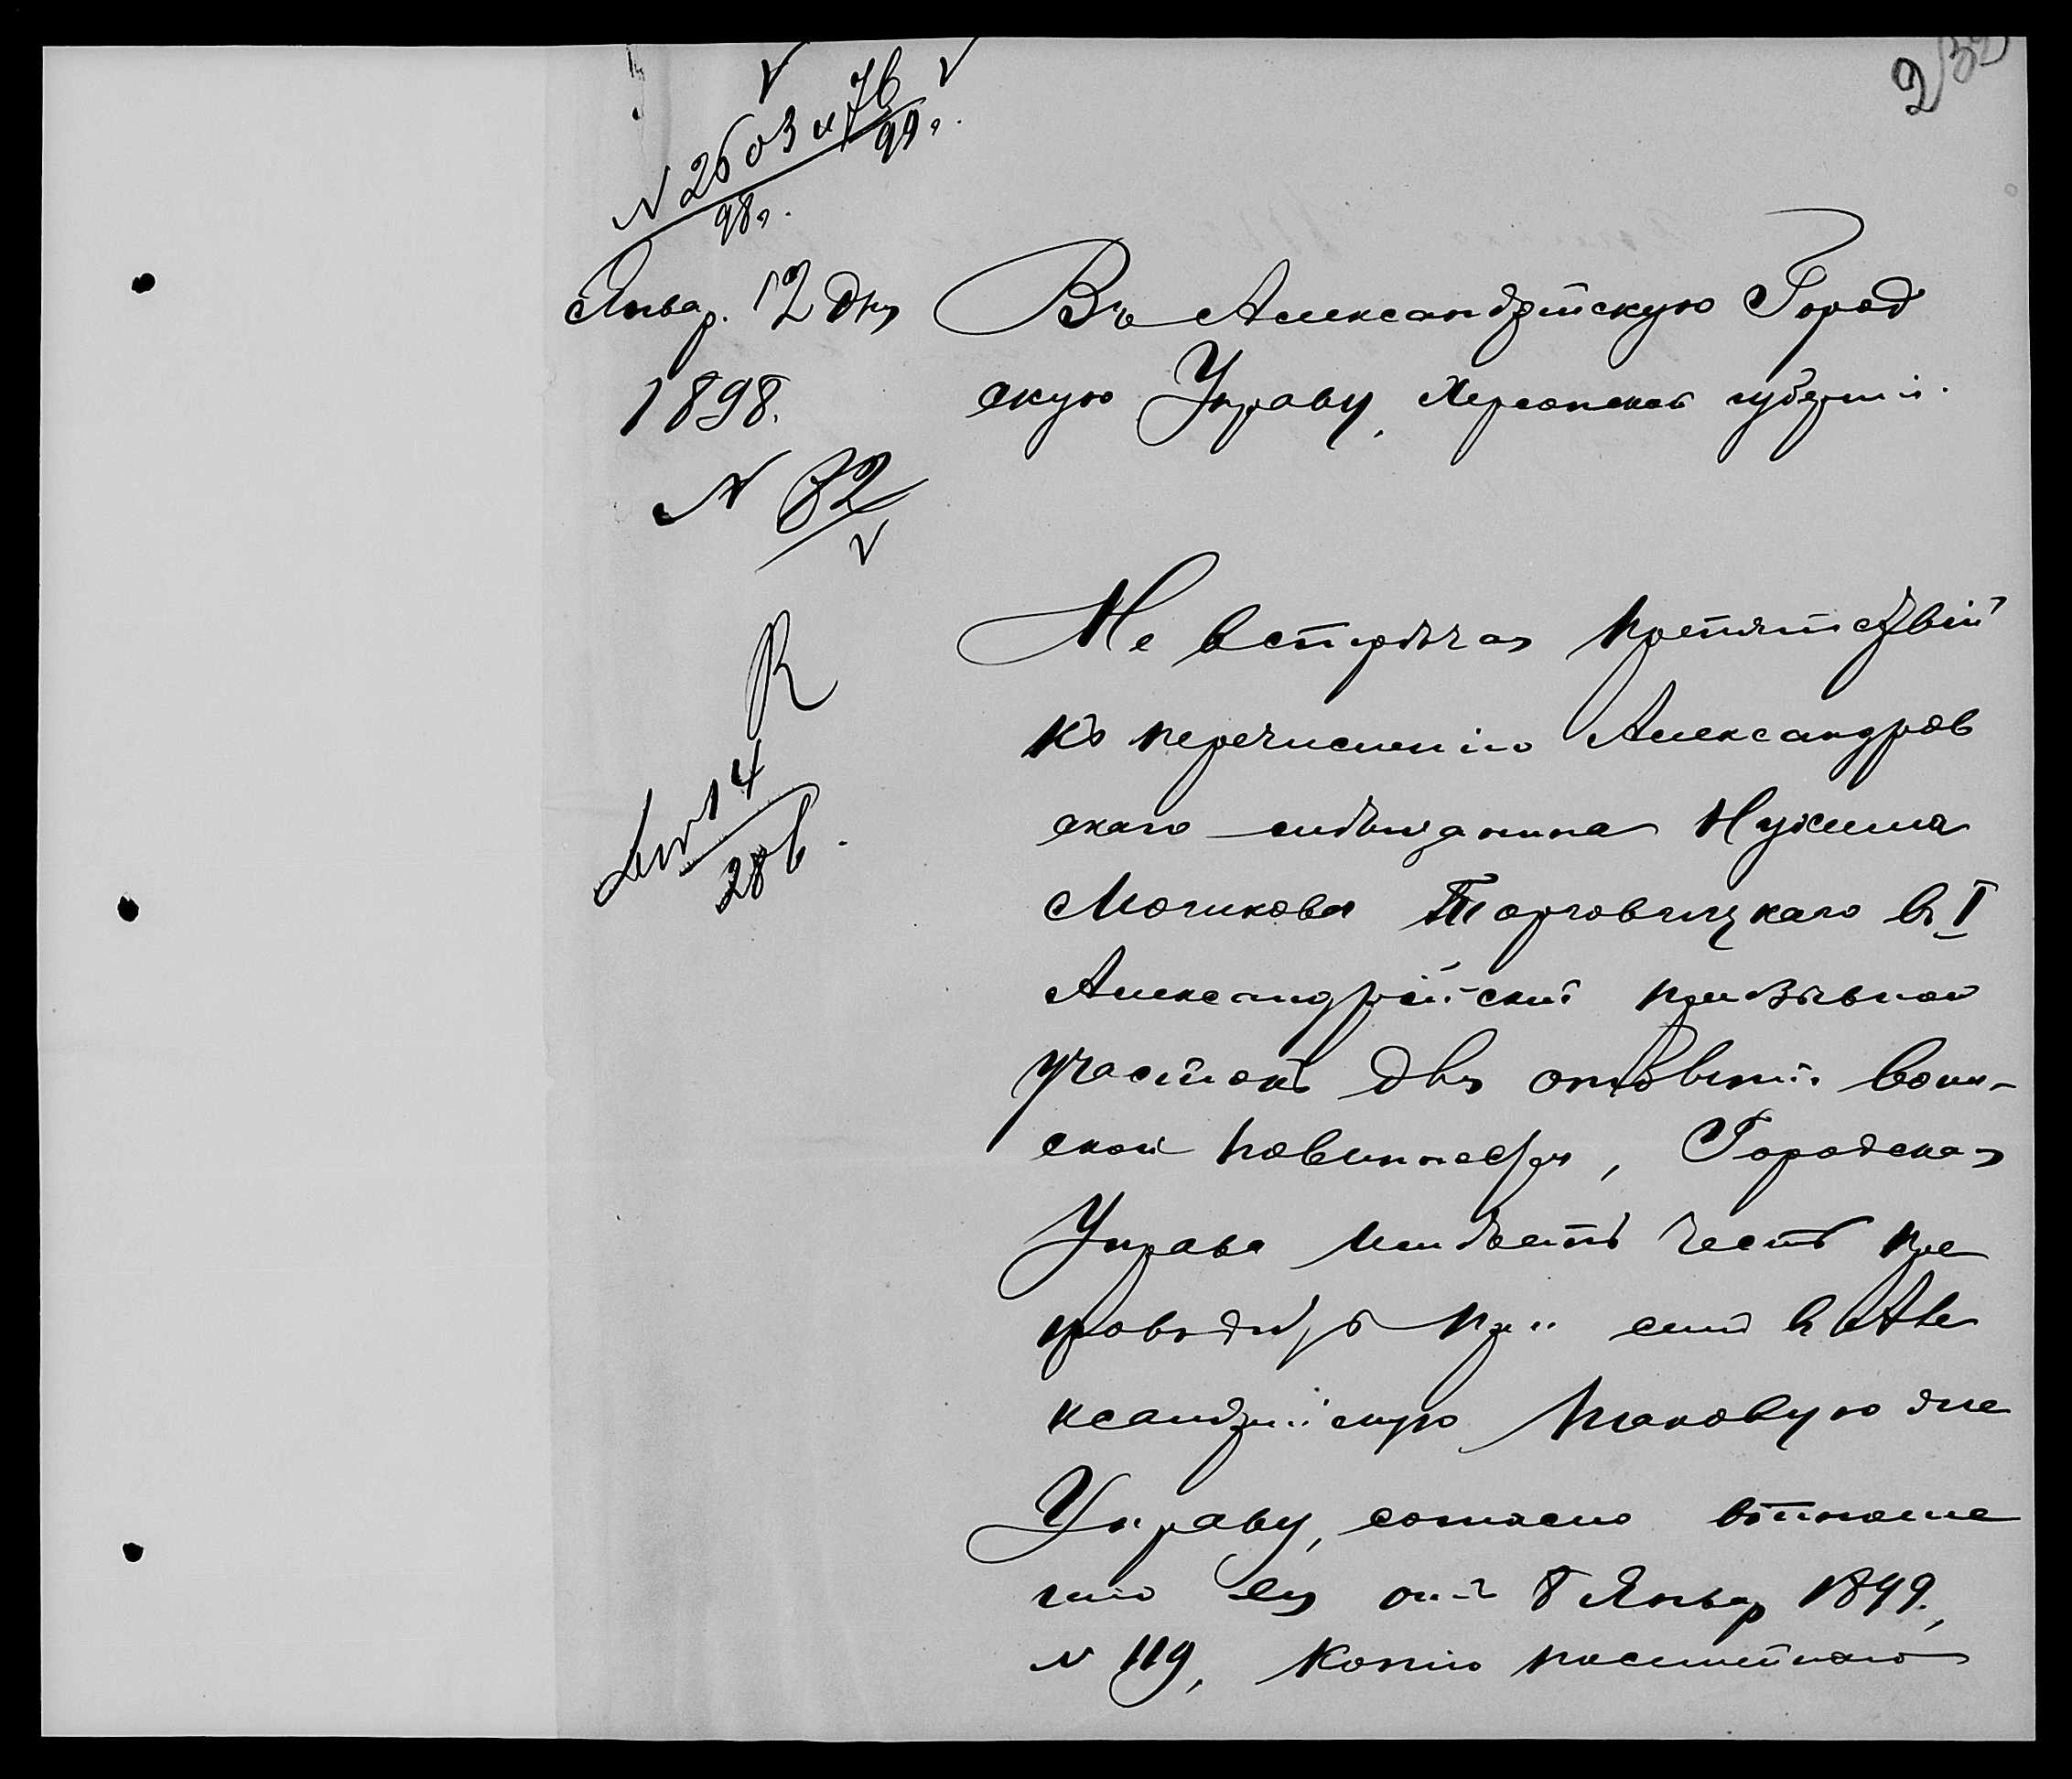 2
N 2603 и 76
98г. 99г.
Январ. 12 дня
1898.
N 82
Въ Александрійскую Город
скую Управу, Херсонской губерніи.
Не встрѣчая препятствій
къ перечисленію Александров
скаго мѣщанина Нухима
Мошкова Торговицкаго въ I
Александрійскій призывной
участокъ для отбытія воин-
ской повинности, Городская
Управа имѣетъ честь пре
проводить при семъ въ Але
ксандрійскую таковую же
Управу, согласно отноше
нію ея отъ 8 Январ 1899.,
N 119, копію посемейнаго